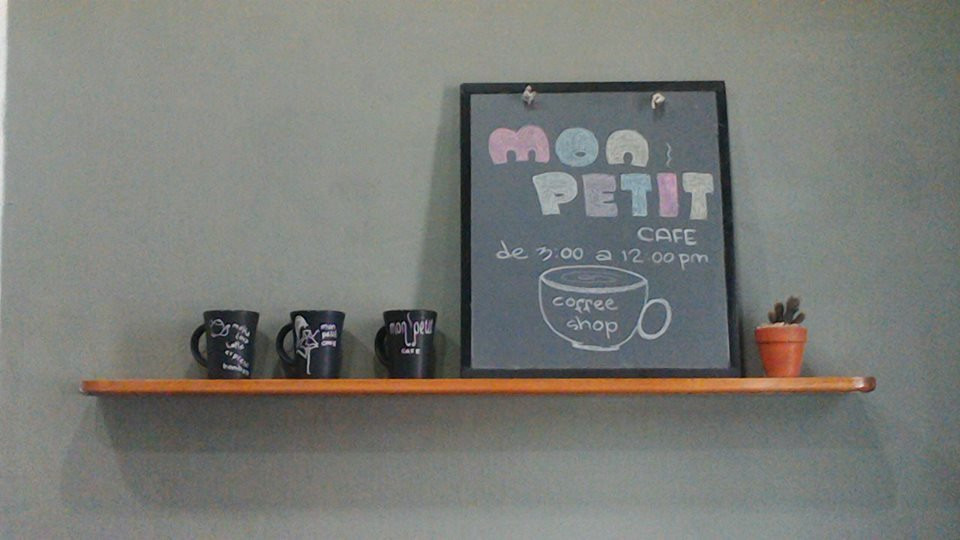 mon
PETIT
CAFE
de 3:00 a 12:00 pm
coffee
shop
mon
petit
mon petit
CAFE